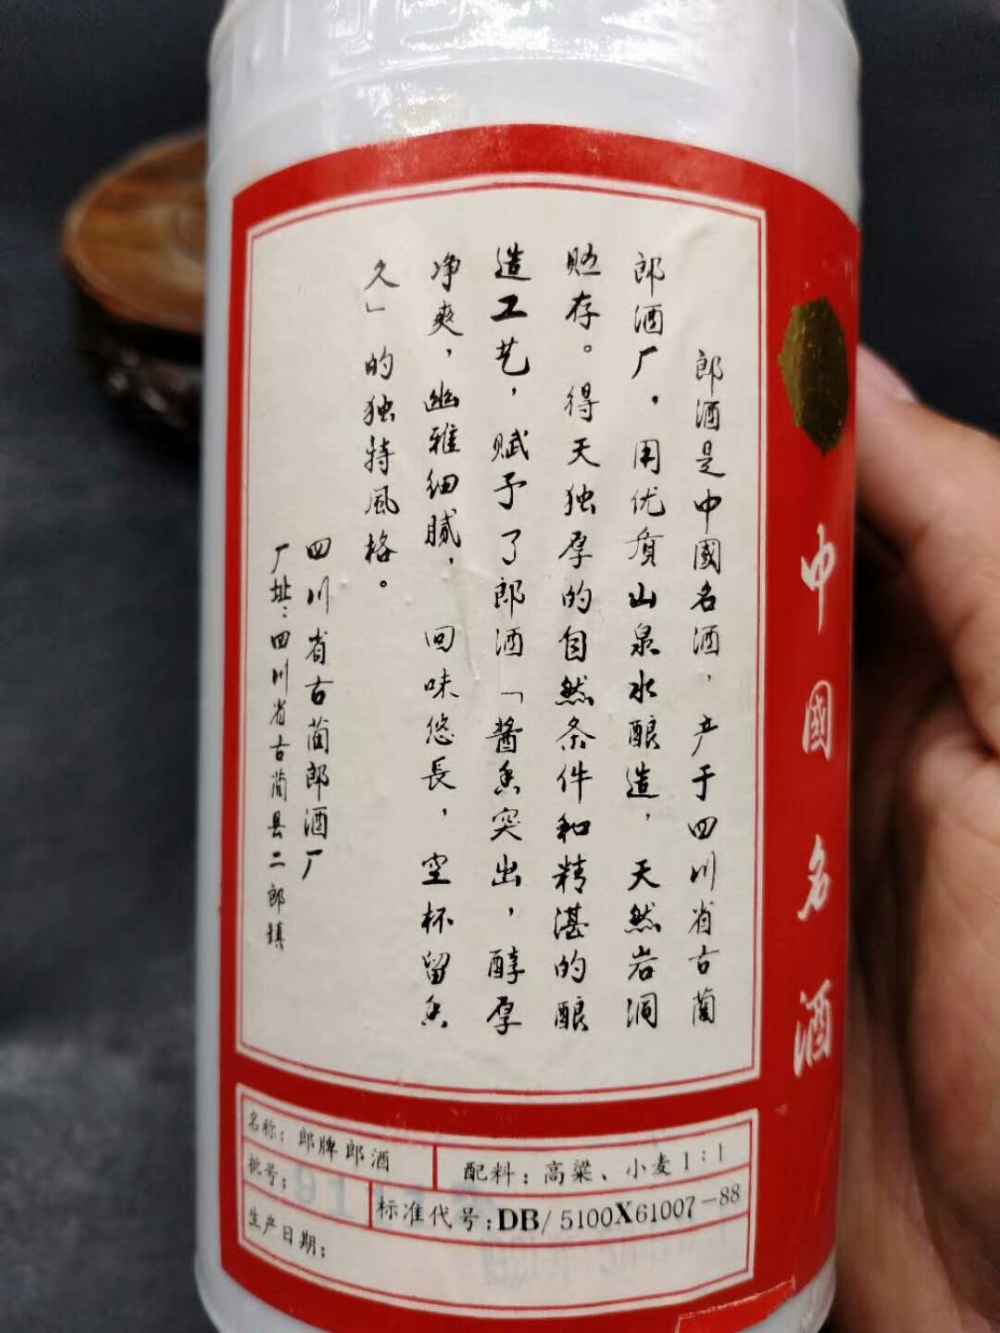 中國名酒
郎酒是中國名酒，产于四川省古蔺
郎酒厂，用优质山泉水酿造，天然岩洞
贮存。得天独厚的自然条件和精湛的酿
造工艺，赋予了郎酒「酱香突出，醇厚
净爽，幽雅细腻，回味悠長，空杯留香
久」的独特風格。
四川省古蔺郎酒厂
厂址：四川省古蔺县二郎镇
名称：郎牌郎酒
配料：高粱、小麦1：1
批号：
标准代号：DB/5100X61007-88
生产日期：